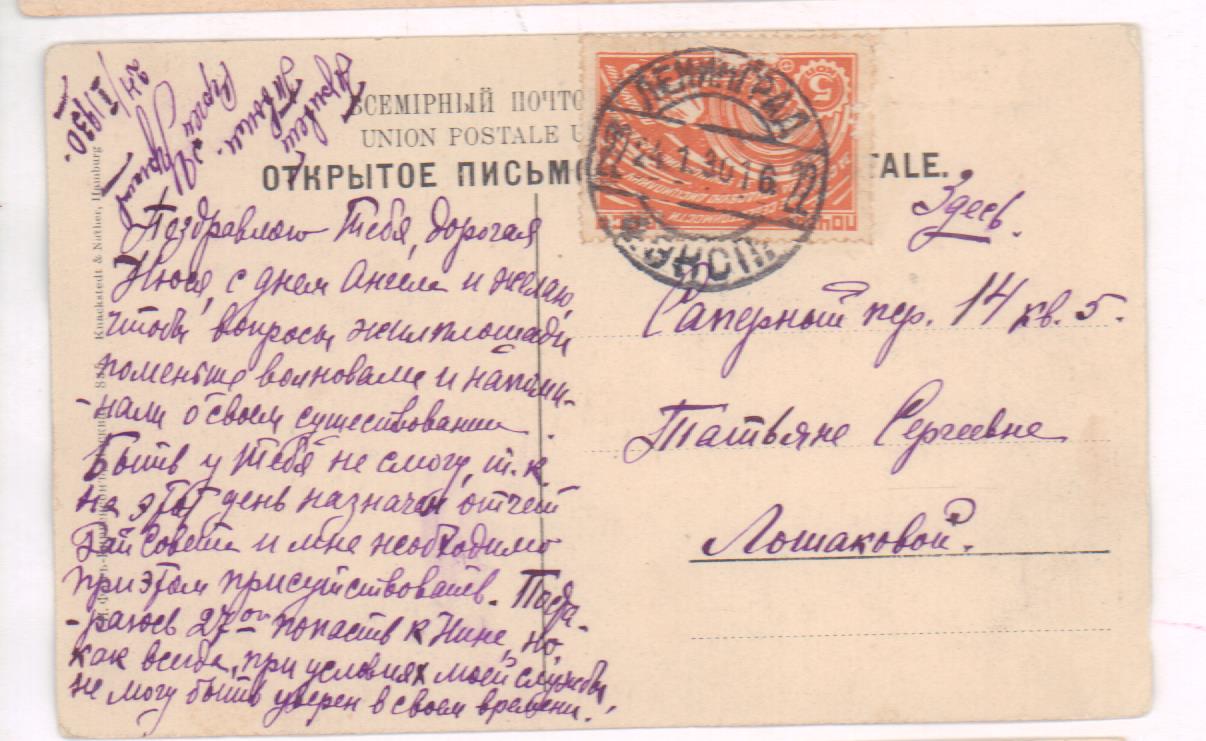 ВСЕМІРНЫЙ ПОЧТО
UNION POSTALE U
ОТКРЫТОЕ ПИСЬМО
TALE.
ЛЕНИНГРАД
24.1.30 16
ЭКСП.
5 КОП
Поздравляю Тебя, дорогая
Нюся, с днем Ангела и желаю,
чтобы вопросы жилплощади
поменьше волновали и напоми-
-нали о своем существовании.
Быть у Тебя не смогу, т.к.
на этот день назначен отчет
РайСовета и мне необходимо
при этом присутствовать. Поста-
-раюсь 27го попасть к Нине, но,
как всегда, при условиях моей службы
не могу быть уверен в своем времени.
Привет
24/I 1930.
Здесь.
Саперный пер. 14 кв. 5.
Татьяне Сергеевне
Лошаковой.
Knackstedt & Näther, Hamburg